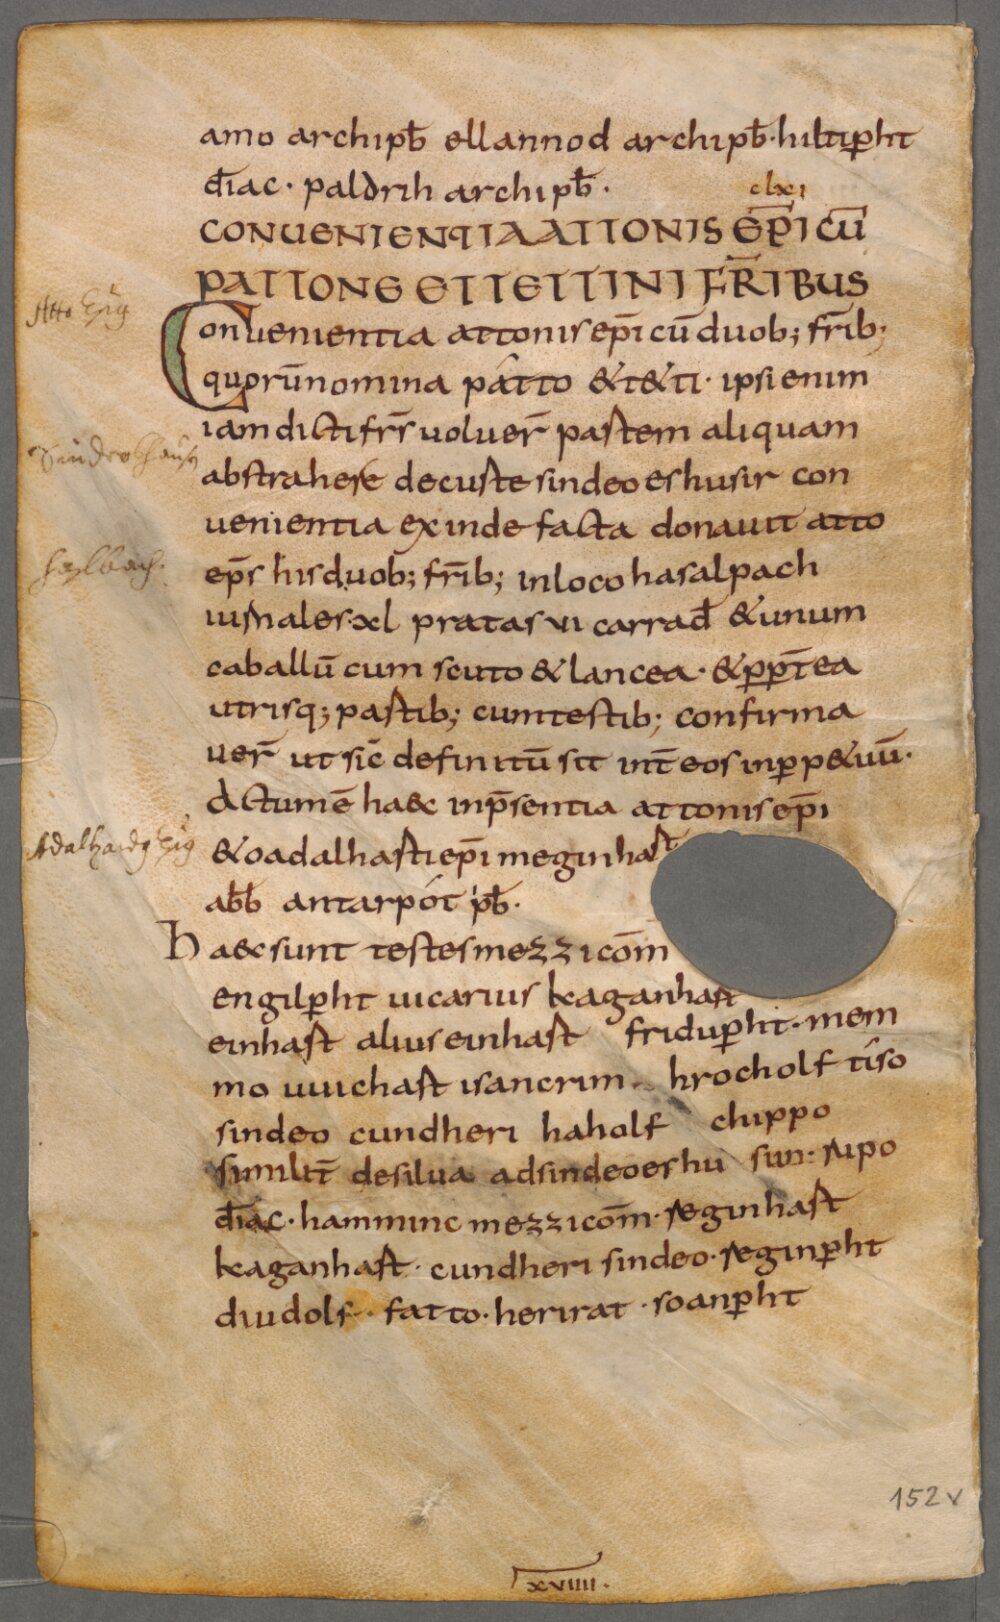 amo archipb̄ ellannod archipb̄· hiltip̄ht
d̄iac· paldrih archipb̄·
clxi
CONUENIENTIA ATTONIS EP̄I CŪ
PATTONE ET TETTINI FR̄IBUS
Atto Ep̄g
Conuenientia attonis ep̄i cū duob; fr̄ib;
quorū nomina patto & t&ti· ipsi enim
iam dicti fr̄s uoluer̄ partem aliquam
Sinderhausn
abstrahere de custe sindeoeshusir con
uenientia exinde facta donauit atto
haslbach.
ep̄s his duob; fr̄ib; in loco hasalpach
iurnales·xl pratas vi carrad̄ & unum
caballū cum scuto & lancea· & ꝓpt̄ea
utrisq; partib; cum testib; confirma
uer̄ ut sic̄ definitū sit int̄ eos in ꝑp&uū·
Actum ē haec in p̄sentia attonis ep̄i
Adalhardg Ep̄g
& oadalharti ep̄i meginhart
abb̄ antarpot pb̄·
Haec sunt testes mezzi com̄
engilp̄ht uicarius keaganhart
einhart alius einhart fridup̄ht· mem
mo uuichart isancrim hrocholf tiso
sindeo cundheri haholf chippo
similit̄ de silua ad sindeoeshu sun: rupo
d̄iac· hamminc mezzi com̄· reginhart
keaganhart· cundheri sindeo· reginp̄ht
diudolf· fatto· herirat· soanp̄ht
152 v
xviiii·